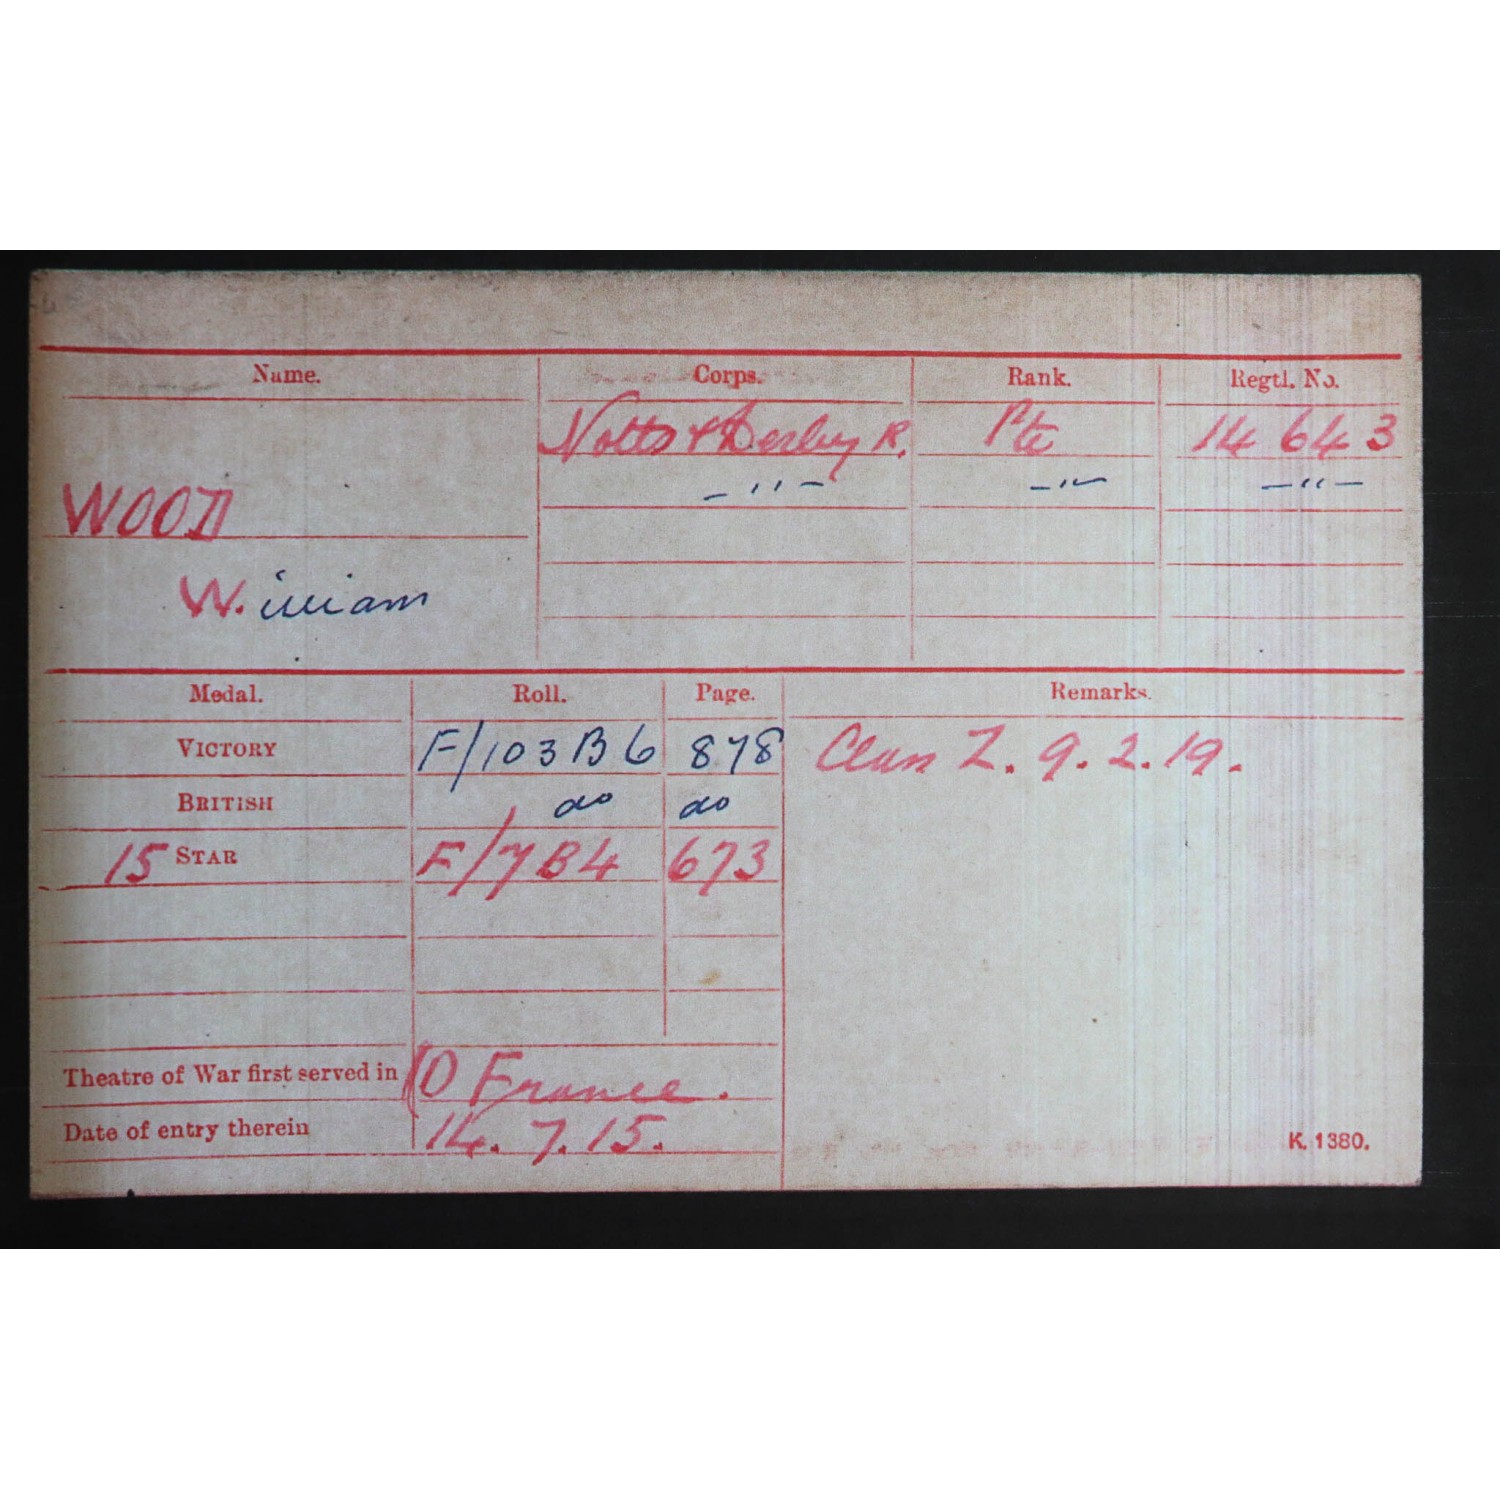 Name. Corps. Rank. Regtl. No.
Notts & Derby R. Pte 14643
WOOD -"- -"- -"-
W. illiam
Medal. Roll. Page. Remarks.
VICTORY F/103 B6 878 Class Z. 9.2.19.
BRITISH do do
15 STAR F/7B4 673
Theatre of War first served in (1) France.
Date of entry therein 14.7.15.
K. 1380.